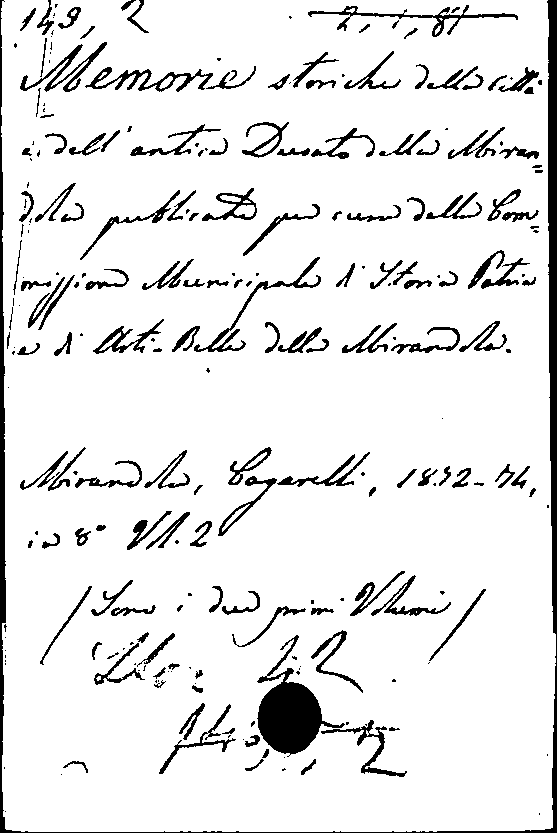 149, 2 2, 1, 81
Memorie storiche della città
e dell'antico Ducato della Miran=
dola publicate per cura della Com=
missione Municipale di Storia Patria
e di Arti-Belle della Mirandola.
Mirandola, Cagarelli, 1872-74,
in 8° Vl. 2
/ Sono i due primi Volumi /
2